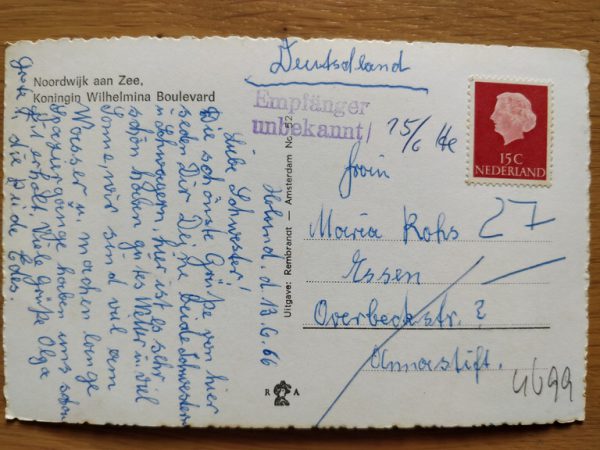 Noordwijk aan Zee,
Koningin Wilhelmina Boulevard
Holand. d. 13. 6. 66
Liebe Schwester!
Die schönste Grüße von hier
senden Dir Deine beide Schwestern
u. Schwagern, hier ist es sehr
schön haben gutes Wetter u. viel
Sonne, wir sind viel am
Wasser u. machen lange
Spaziergänge haben uns schon
gut erholt. Viele Grüße Olga
die beide
Uitgave: Rembrandt — Amsterdam No. 52
Deutschland
Empfänger
unbekannt
15/6
15 C
NEDERLAND
Maria Rohs
27
Essen
Overbeckstr. 2
Annastift.
R A
4699